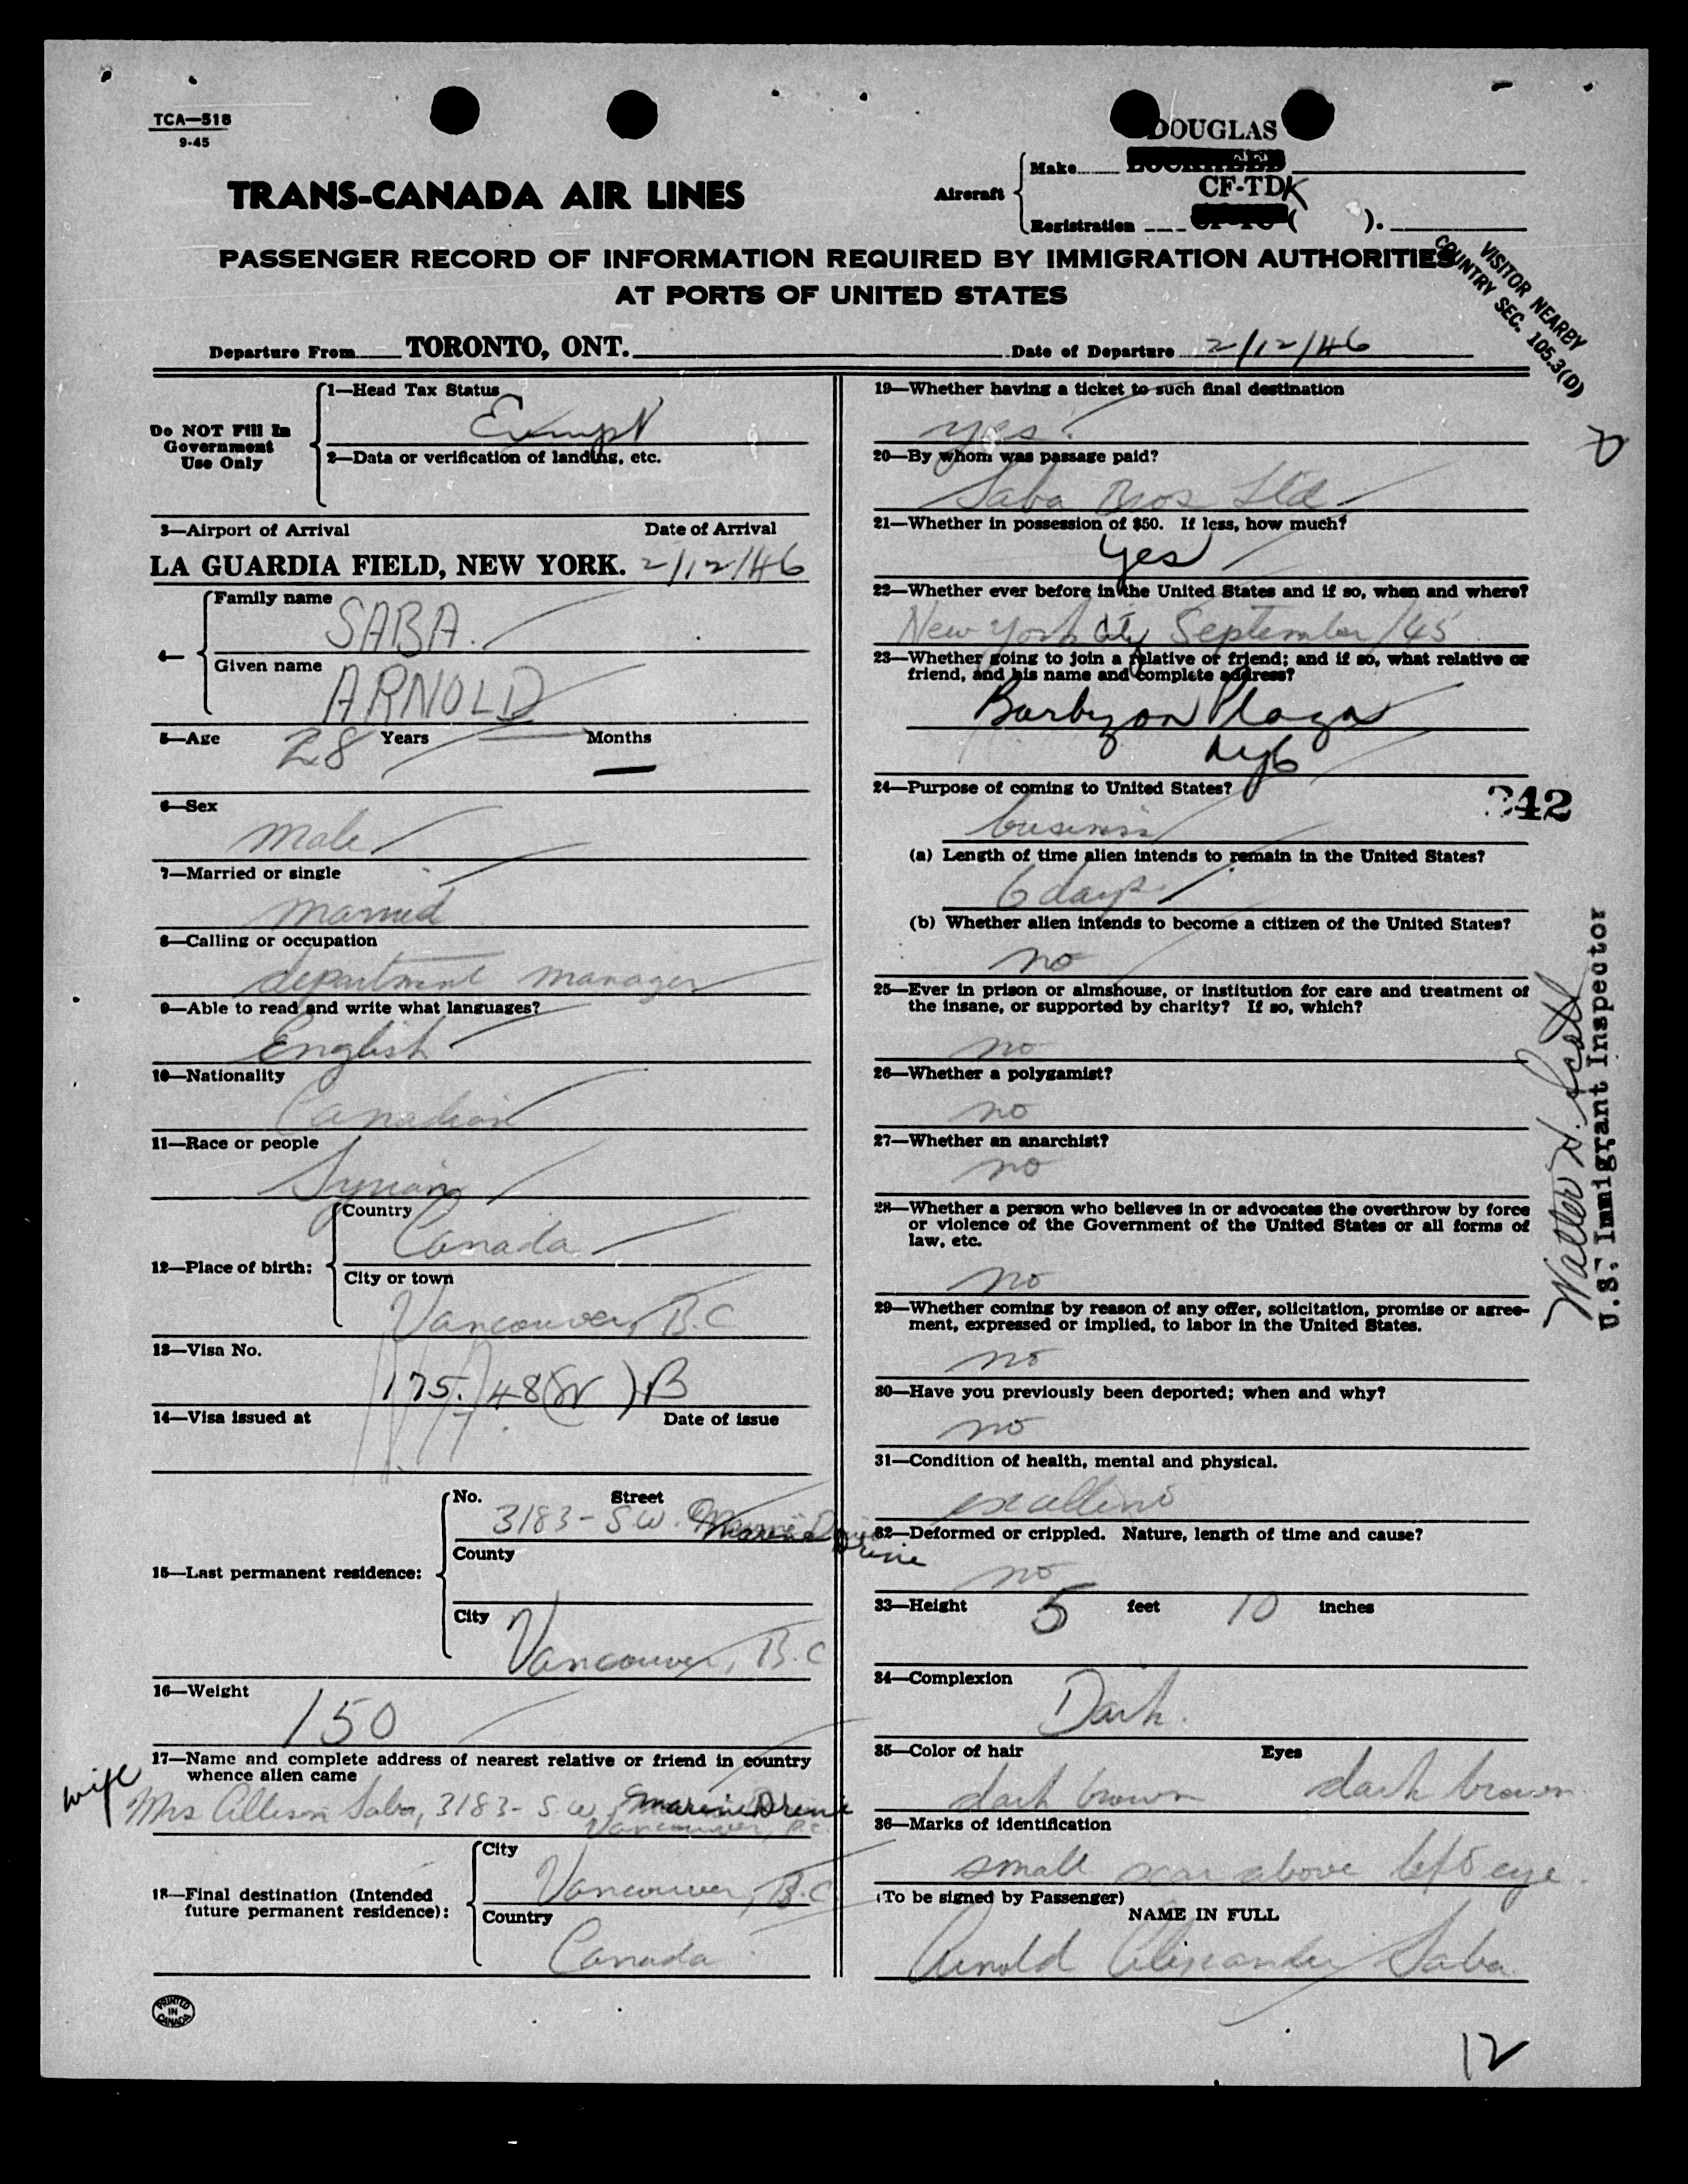 TCA—518
9-45
DOUGLAS
TRANS-CANADA AIR LINES
Aircraft
Make
LOCKHEED
CF-TDK
Registration ( ).
PASSENGER RECORD OF INFORMATION REQUIRED BY IMMIGRATION AUTHORITIES
AT PORTS OF UNITED STATES
VISITOR NEARBY
COUNTRY SEC. 105.3(D)
Departure From TORONTO, ONT. Date of Departure 2/12/46
Do NOT Fill In
Government
Use Only
1—Head Tax Status
Exempt
2—Data or verification of landing, etc.
3—Airport of Arrival Date of Arrival
LA GUARDIA FIELD, NEW YORK. 2/12/46
4—
Family name
SABA.
Given name
ARNOLD
5—Age 28 Years — Months
6—Sex
male
7—Married or single
married
8—Calling or occupation
department manager
9—Able to read and write what languages?
English
10—Nationality
Canadian
11—Race or people
Syrian
12—Place of birth:
Country
Canada
City or town
Vancouver, B.C
13—Visa No.
175.48( ) B
14—Visa issued at Date of issue
15—Last permanent residence:
No. Street
3183 - S.W. Marine Drive
County
City
Vancouver, B.C
16—Weight
150
17—Name and complete address of nearest relative or friend in country
whence alien came
wife
Mrs Allison Saba, 3183 - S.W. Marine Drive
Vancouver, B.C.
18—Final destination (Intended
future permanent residence):
City
Vancouver, B.C
Country
Canada
PRINTED
IN
CANADA
19—Whether having a ticket to such final destination
yes.
20—By whom was passage paid?
Saba Bros Ltd
21—Whether in possession of $50. If less, how much?
yes
22—Whether ever before in the United States and if so, when and where?
New York City September/45
23—Whether going to join a relative or friend; and if so, what relative or
friend, and his name and complete address?
Barbizon Plaza
NYC
24—Purpose of coming to United States?
business
342
(a) Length of time alien intends to remain in the United States?
6 days
(b) Whether alien intends to become a citizen of the United States?
no
25—Ever in prison or almshouse, or institution for care and treatment of
the insane, or supported by charity? If so, which?
no
26—Whether a polygamist?
no
27—Whether an anarchist?
no
28—Whether a person who believes in or advocates the overthrow by force
or violence of the Government of the United States or all forms of
law, etc.
no
29—Whether coming by reason of any offer, solicitation, promise or agree-
ment, expressed or implied, to labor in the United States.
no
30—Have you previously been deported; when and why?
no
31—Condition of health, mental and physical.
excellent
32—Deformed or crippled. Nature, length of time and cause?
no
33—Height 5 feet 10 inches
34—Complexion
Dark.
35—Color of hair Eyes
dark brown dark brown
36—Marks of identification
small scar above left eye.
(To be signed by Passenger)
NAME IN FULL
Arnold Alexander Saba
Walter H.
U.S. Immigrant Inspector
12